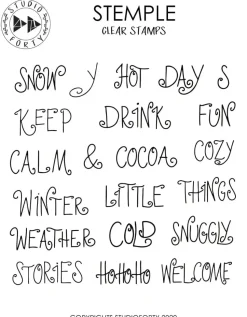 STUDIO FORTY
STEMPLE
CLEAR STAMPS
SNOW Y HOT DAY S
KEEP DRINK FUN
CALM & COCOA COZY
WINTER LITTLE THINGS
WEATHER COLD SNUGGLY
STORIES HoHoHo WELCOME
COPYRIGHT STUDIOFORTY 2020